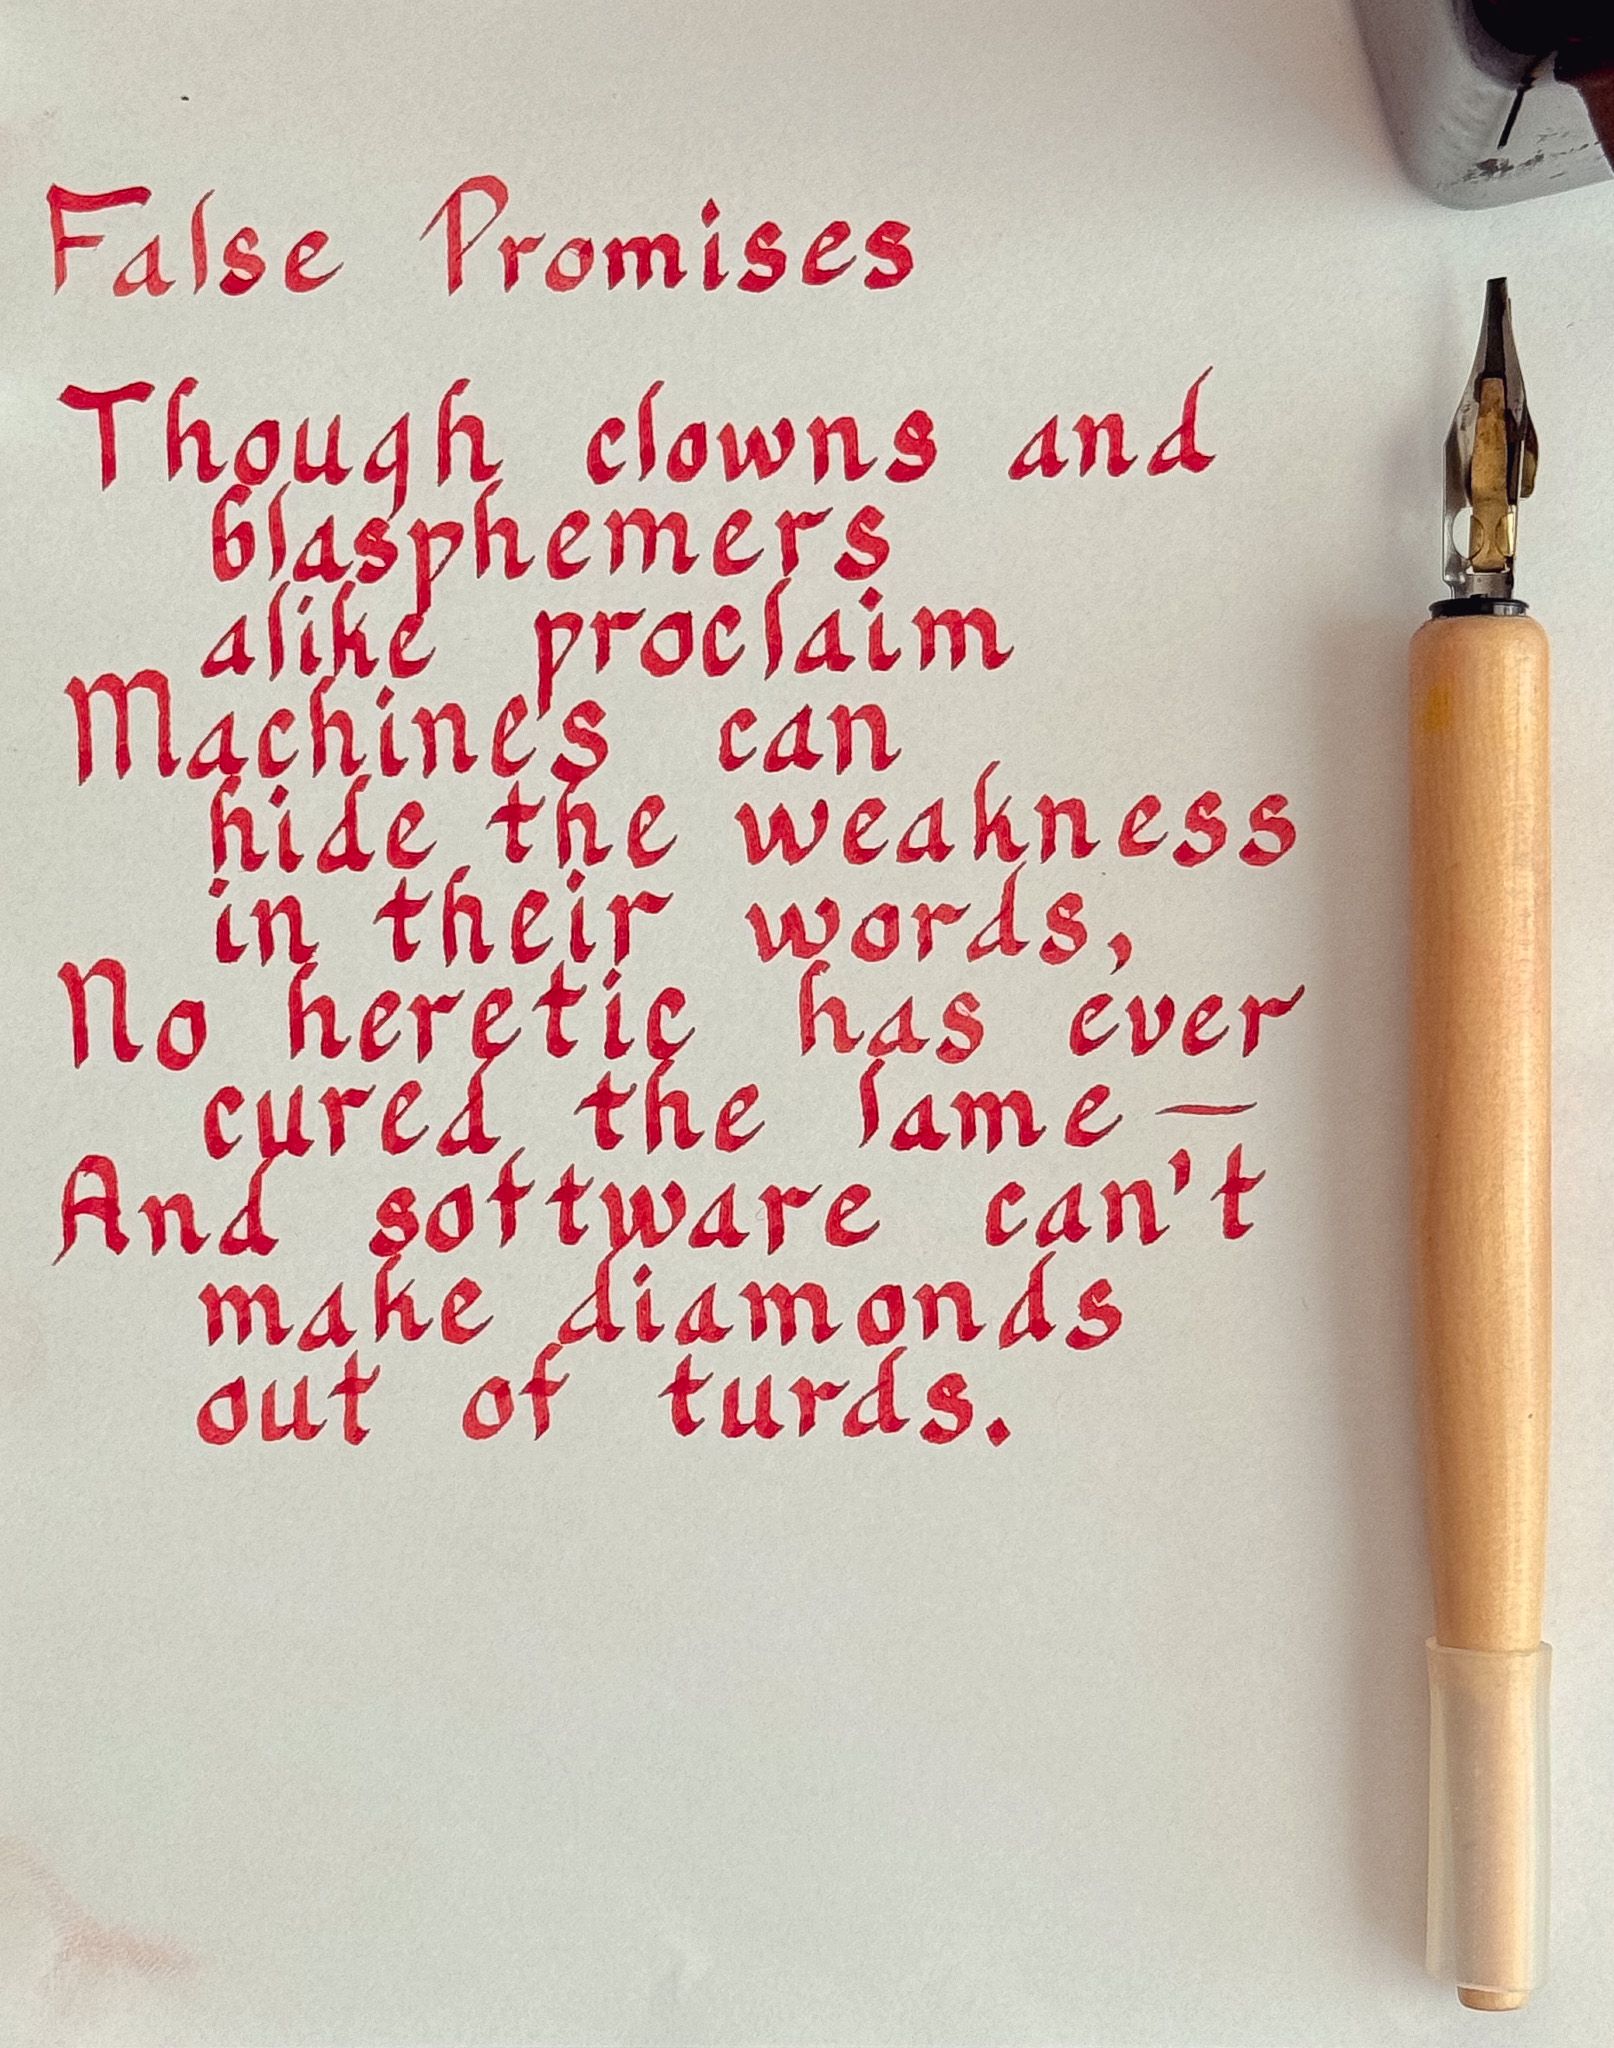 False Promises
Though clowns and
blasphemers
alike proclaim
Machines can
hide the weakness
in their words,
No heretic has ever
cured the lame—
And software can't
make diamonds
out of turds.